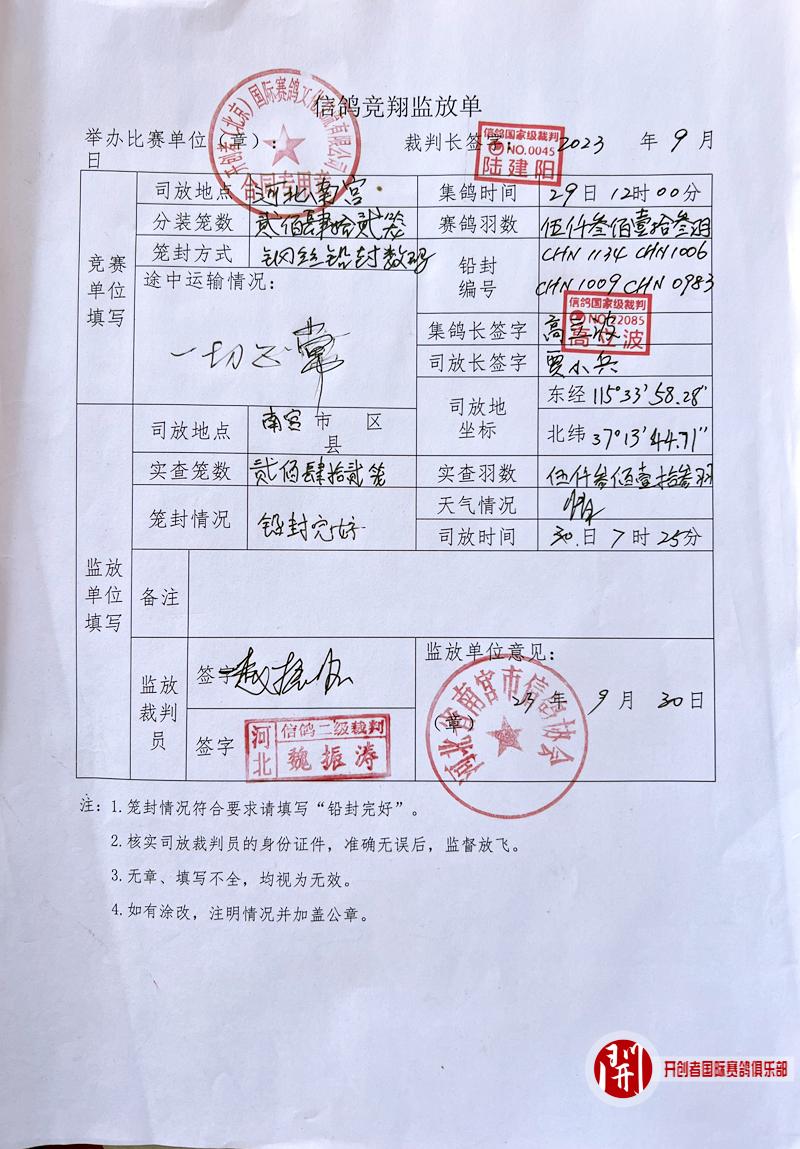 信鸽竞翔监放单
举办比赛单位（章）： 裁判长签字： 2023 年 9 月
日
开创者(北京)国际赛鸽文化有限公司
合同专用章
信鸽国家级裁判
NO.0045
陆建阳
竞赛单位填写
司放地点 河北南宫 集鸽时间 29日 12时00分
分装笼数 贰佰肆拾贰笼 赛鸽羽数 伍仟叁佰壹拾叁羽
笼封方式 钢丝铅封数码 铅封编号 CHN 1134 CHN 1006
CHN 1009 CHN 0983
途中运输情况：
一切正常
信鸽国家级裁判
高立波
集鸽长签字 高立波
司放长签字 贾小兵
司放地坐标 东经 115°33′58.28″
北纬 37°13′44.71″
监放单位填写
司放地点 南宫 市 区
县
实查笼数 贰佰肆拾贰笼 实查羽数 伍仟叁佰壹拾叁羽
笼封情况 铅封完好 天气情况 晴
司放时间 30.日 7时25分
备注
监放裁判员 签字
签字
河北
信鸽二级裁判
魏振涛
监放单位意见：
年 9 月 30日
（章）
河北省南宫市信鸽协会
注：1.笼封情况符合要求请填写“铅封完好”。
2.核实司放裁判员的身份证件，准确无误后，监督放飞。
3.无章、填写不全，均视为无效。
4.如有涂改，注明情况并加盖公章。
開 开创者国际赛鸽俱乐部